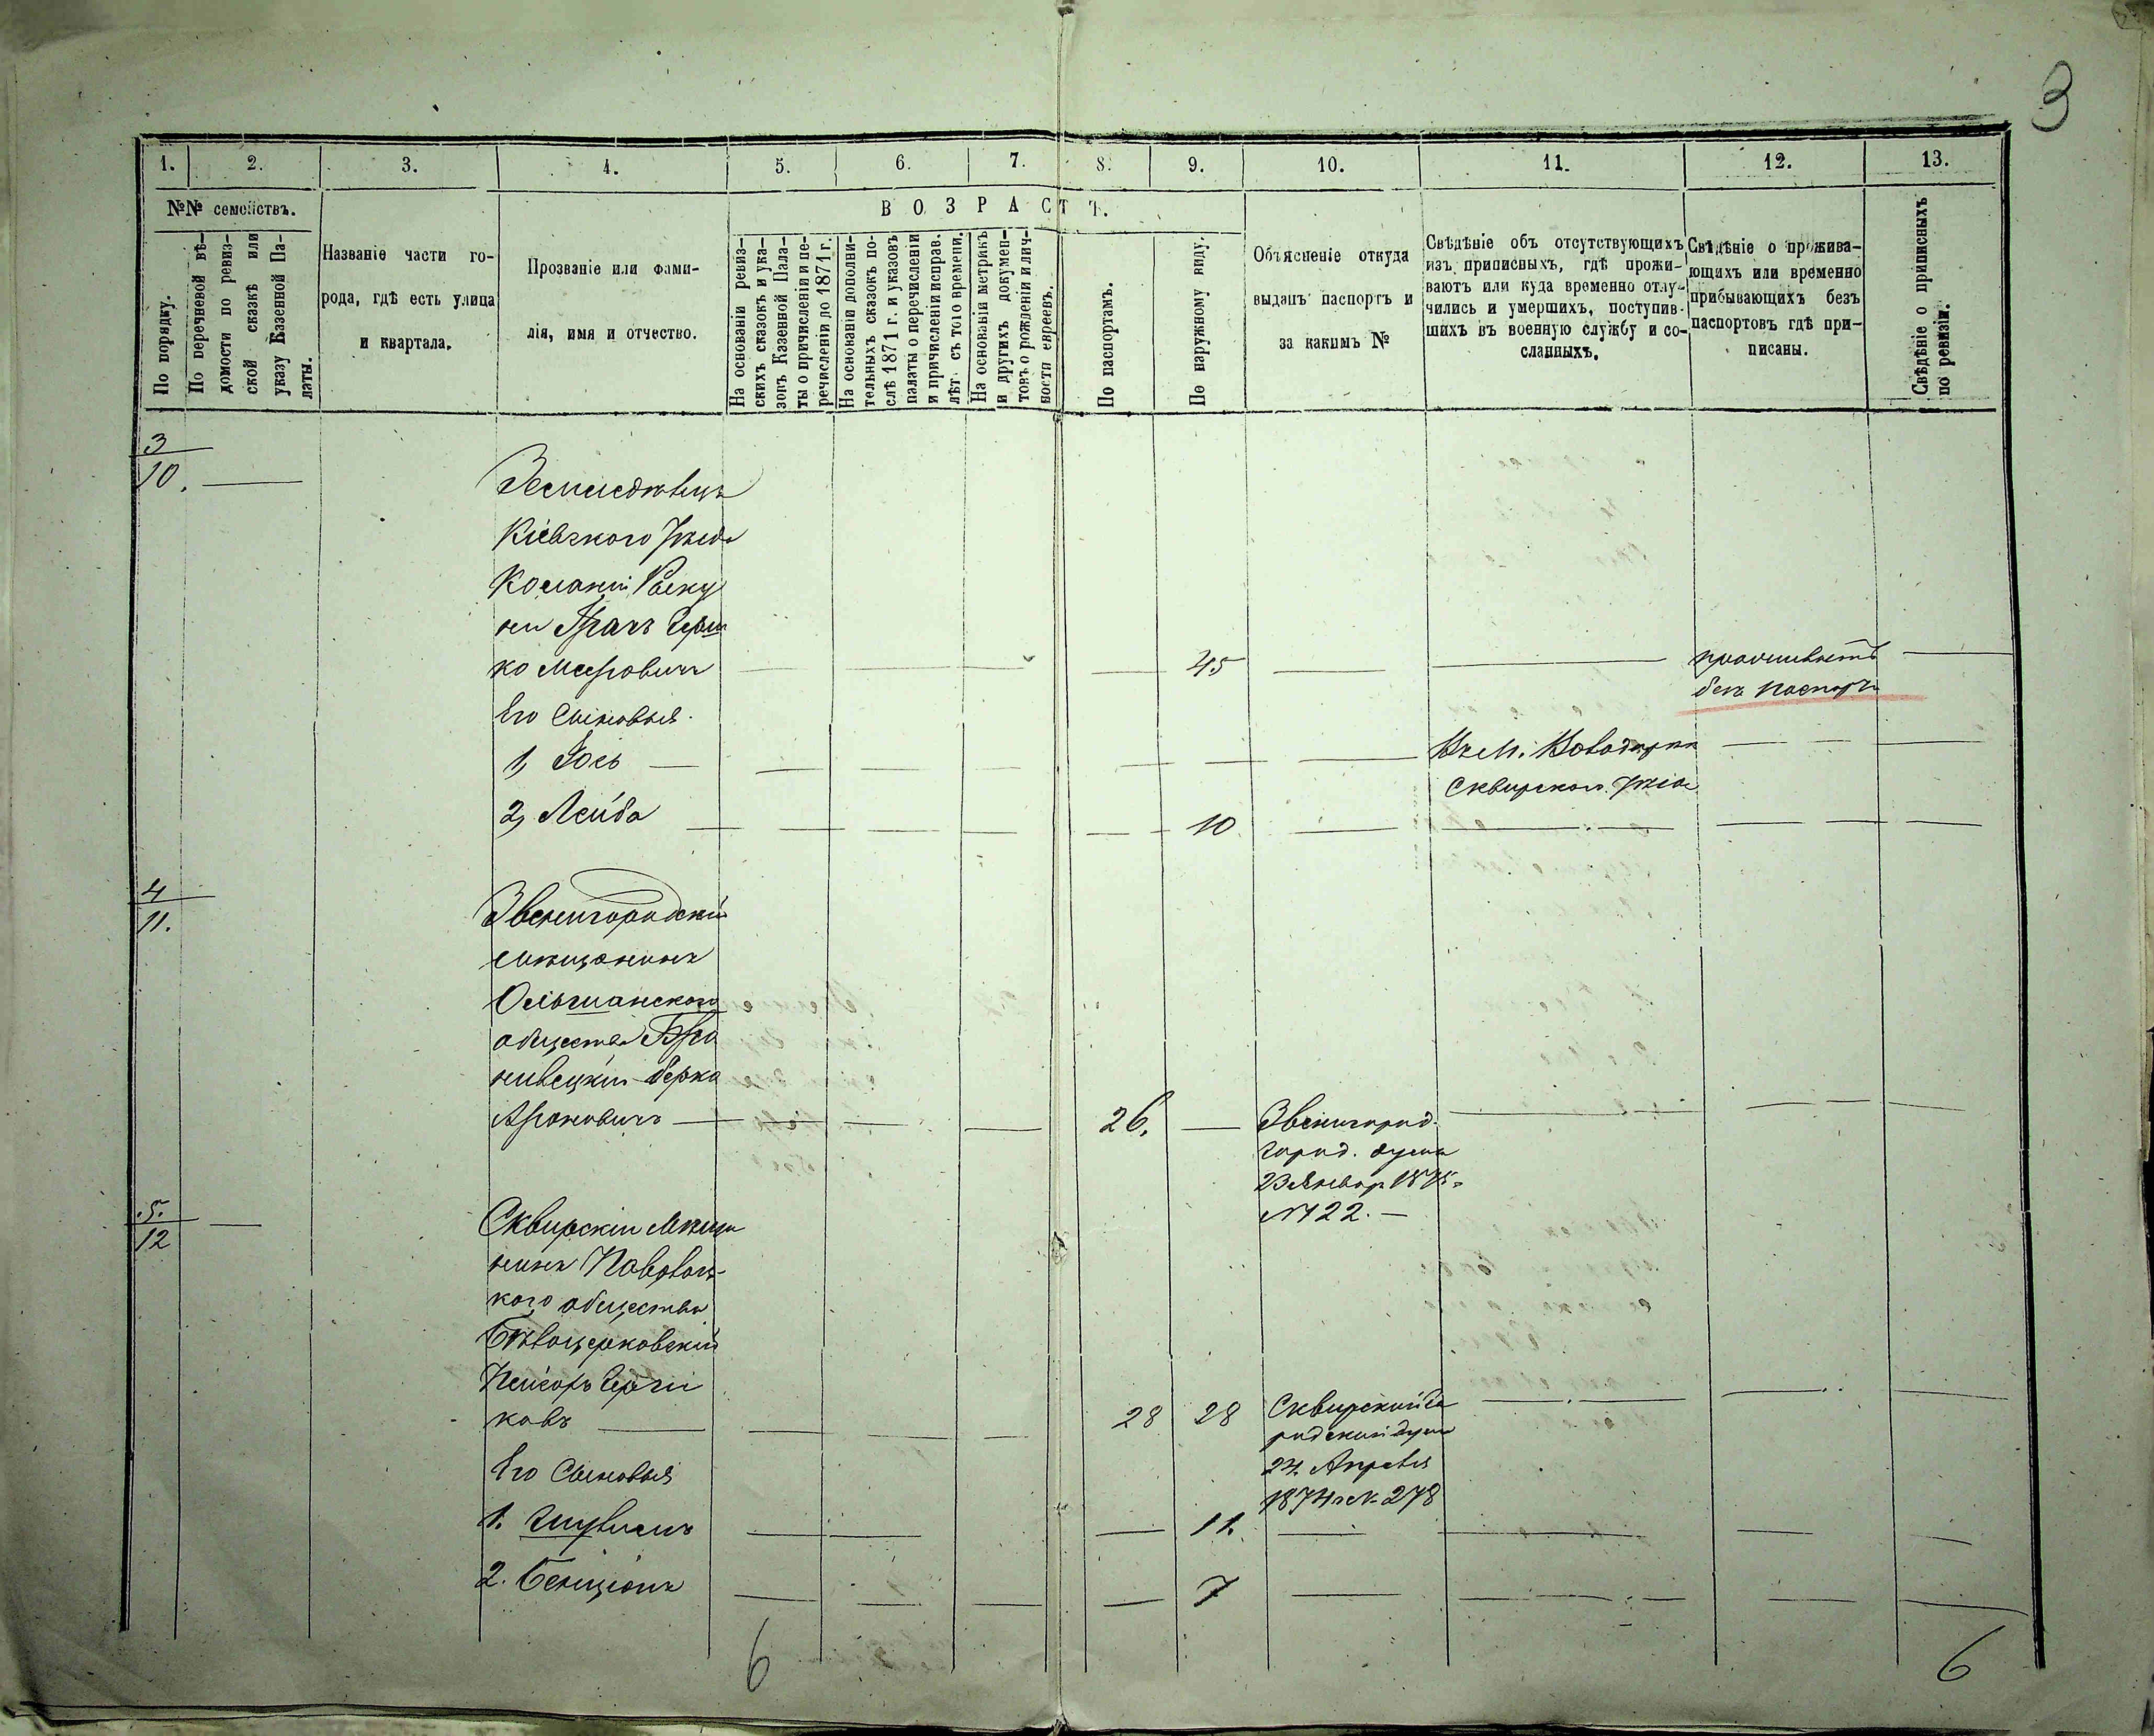 3
1.
2.
3.
4.
5.
6.
7.
8.
9.
10.
11.
12.
13.
№№ семействъ.
В О З Р А С Т Ъ.
По порядку.
По перечневой вѣ-
домости по ревиз-
ской сказкѣ или
указу Казенной Па-
латы.
Названіе части го-
рода, гдѣ есть улица
и квартала.
Прозваніе или фами-
лія, имя и отчество.
На основаніи ревиз-
скихъ сказокъ и ука-
зовъ Казенной Пала-
ты о причисленіи и пе-
речисленіи до 1871 г.
На основаніи дополни-
тельныхъ сказокъ по-
слѣ 1871 г. и указовъ
палаты о перечисленіи
и причисленіи исправ.
лѣт. съ того времени.
На основаніи метрикъ
и другихъ докумен-
товъ о рожденіи и лич-
ности евреевъ.
По паспортамъ.
По наружному виду.
Объясненіе откуда
выданъ паспортъ и
за какимъ №
Свѣдѣніе объ отсутствующихъ
изъ приписныхъ, гдѣ прожи-
ваютъ или куда временно отлу-
чились и умершихъ, поступив-
шихъ въ военную службу и со-
сланныхъ.
Свѣдѣніе о прожива-
ющихъ или временно
прибывающихъ безъ
паспортовъ гдѣ при-
писаны.
Свѣдѣніе о приписныхъ
по ревизіи.
3
10.
Земледѣлецъ
Кіевскаго Уѣзда
Колоніи
Грачъ Герш
ко Мееровичъ
45
проживаетъ
безъ паспорта
Его Сыновья.
1, Іось
Въ М.
Сквирскаго Уѣзда
2, Лейба
10
4
11.
Звенигородскій
мѣщанинъ
Ольшанского
общества Бро
нивецкій Берко
Ароновичъ
26.
Звенигород.
город. дума
23 Январ 1875 г
№ 122.
5.
12
Сквирскій Мѣща
нинъ Паволоч-
кого общества
Бѣлоцерковскій
Пейсахъ
ковъ
28
28
Сквирской Го
родской Думы
24 Апрѣля
1874 г № 278
Его Сыновья
1.
11.
2. Бенціонъ
7
6
6